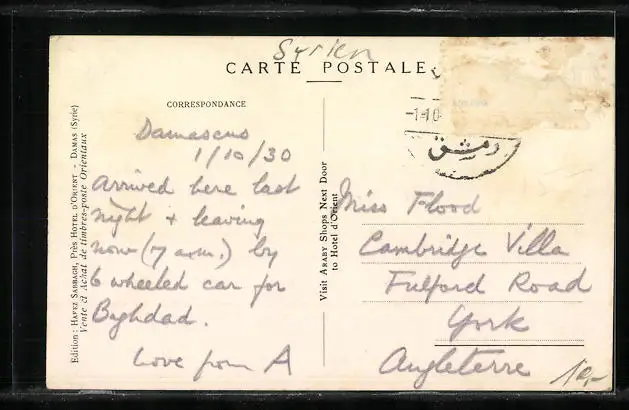 Syrien
CARTE POSTALE
CORRESPONDANCE
Damascus
1/10/30
Arrived here last
night + leaving
now (7 a.m.) by
6 wheeled car for
Baghdad.
Love from A
Edition : HAFEZ SABBAGH, PRÈS HOTEL D'ORIENT - DAMAS (Syrie)
Vente et Achat de timbres-poste Orientaux
Visit ARABY Shops Next Door
to Hotel d'Orient
-1-10-
دمشق
Miss Flood
Cambridge Villa
Fulford Road
York
Angleterre